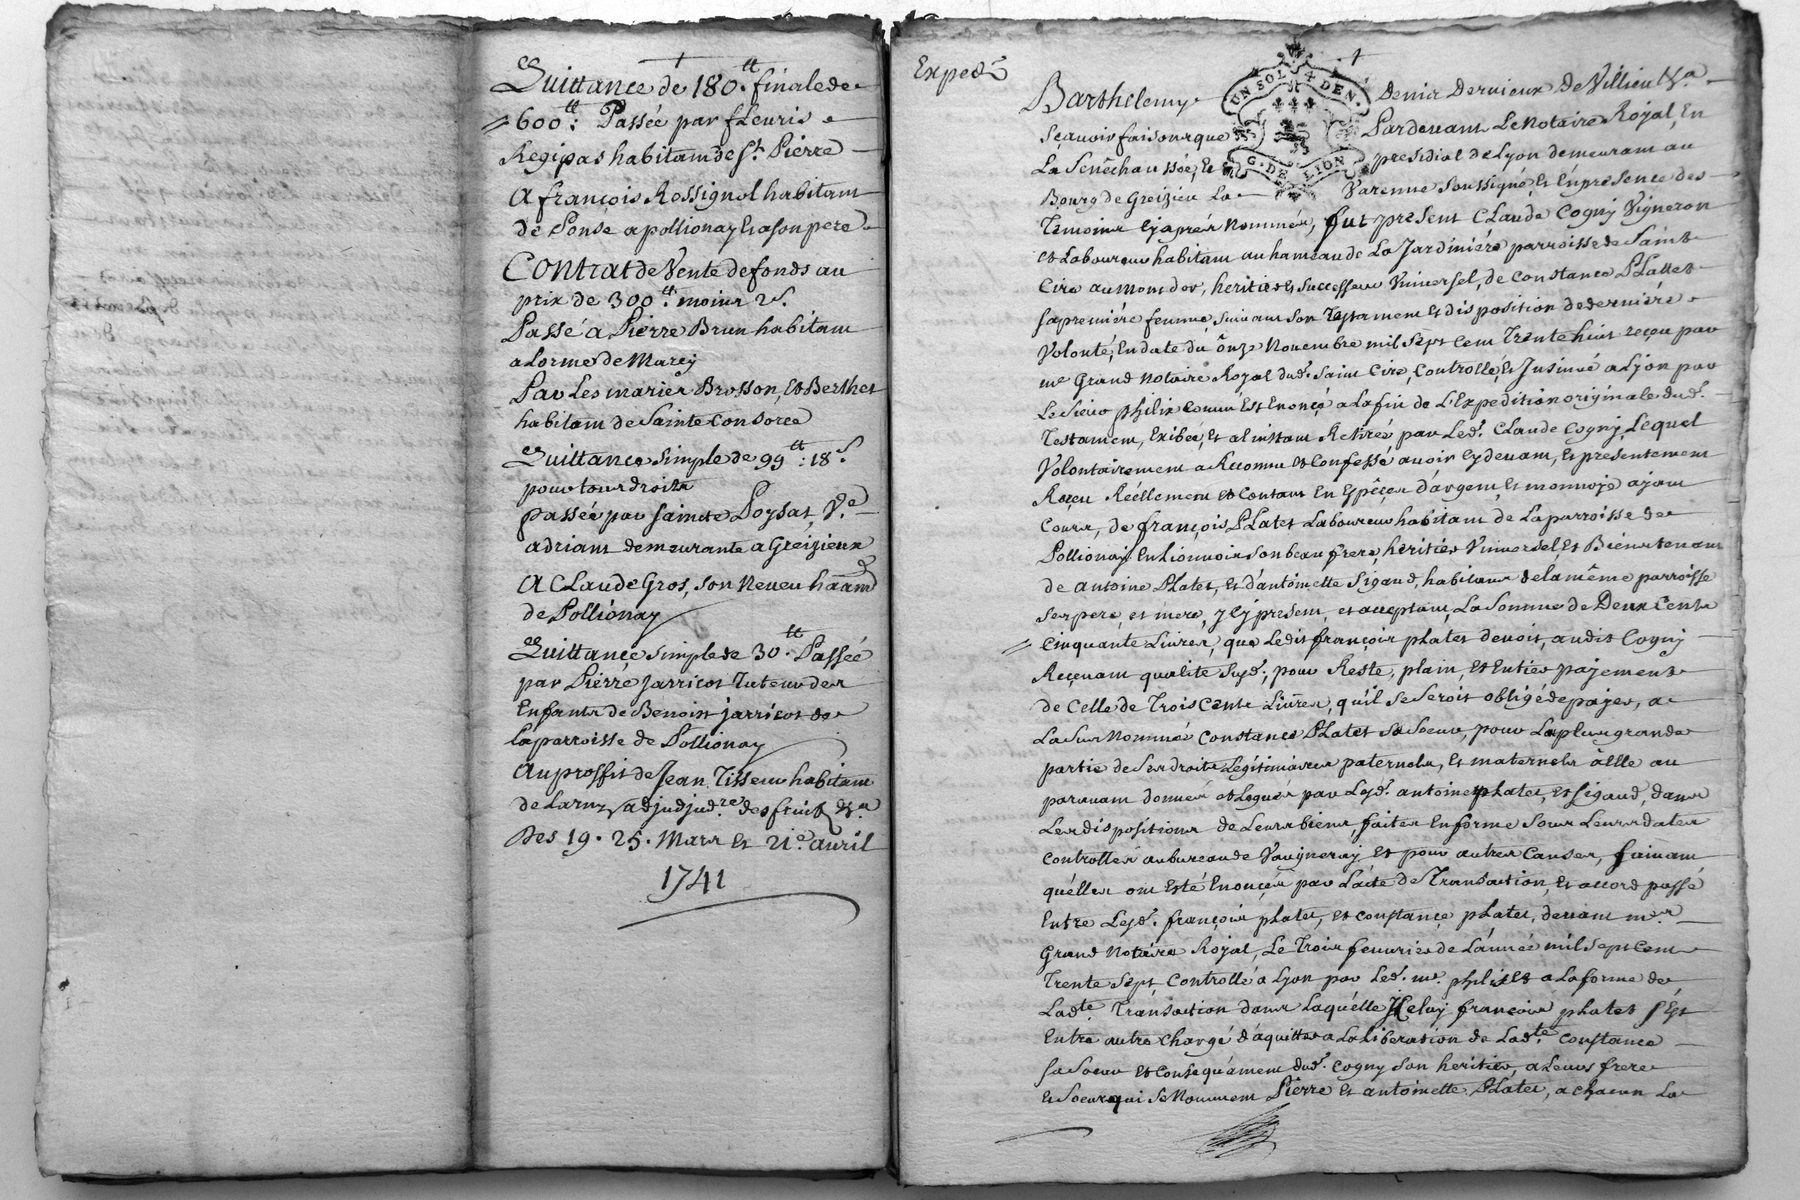 Quittance de 180.tt finale de
600tt: Passée par fleuris
Regipas habitant de St. Pierre
A françois Rossignol habitant
de Ponse a pollionay Et a son pere
Contrat de Vente de fonds au
prix de 300tt: moins 2s.
Passé a Pierre Brun habitant
a Lorme de Marcy
Par Les mariés Brosson, et Berthet
habitant de Sainte Consorce
Quittance simple de 99tt: 18s.
pour tous droits
passée par Sainte Poysat, Ve.
adriant demeurante a Greizieux
A Claude Gros, son Neveu hãant
de Pollionay
Quittance simple de 30.tt Passée
par Pierre Jarricot Tuteur des
Enfants de Benoist Jarricot de
la parroisse de Pollionay
Au proffit de Jean Tisseur habitant
de adjudre. des fruits &a.
Des 19. 25. Mars Et 21e. avril
1741
Exped
UN SOL 4 DEN.
G. DE LION
Barthelemy Denis Dervieux De Villieu &a.
Sçavoir faisons que Pardevant Le Notaire Royal, En
La Senêchaussée, Et presidial de Lyon demeurant au
Bourg de Greizieu La Varenne Soussigné, Et En presence des
Temoins Cy après Nommés, fut present Claude Cogny Vigneron
et Laboureur habitant au hameau de La Jardiniére parroisse de Saint
Cire au mont d'or, heritier et Successeur Universel, de Constance Plattet
sa premiére femme, suivant Son Testament et disposition de derniére
Volonté, En date du ônze Novembre mil Sept Cent Trente huit reçeu par
me Grand Notaire Royal dud. Saint Cire, Controllé, Et Insinué a Lyon par
Le Sieur philix Comme Est Enoncé a la fin de L'Expedition originale dud.
Testament, Exibée, et a l'instant Retirée par Led. Claude Cogny, Lequel
Volontairement a Reconnu et Confessé avoir Cy devant, et presentement
Reçeu Réellement et Contant En Espêçes d'argent, et monnoye ayant
Cours, de françois Platet Laboureur habitant de La parroisse de
Pollionay En Lionnois Son beau frere, heritier Universel, et Bien-tenant
de Antoine Platet, et d'antoinette Sigaud, habitans de la même parroisse
Ses pere, et mere, y Cy present, et acceptant, La Somme de Deux Cents
Cinquante Livres, que Ledit françois platet devoit, audit Cogny
Reçevant qualité Susd., pour Reste, plain, et Entier payement
de Celle de Trois Cents Livres, qu'il Se Seroit obligé de payer, a
La Sus Nommée Constance Platet Sa Soeur, pour La plus grande
partie de Ses droits Legitimaires paternels, et maternels â Elle au
paravant donnés et Legués par Lesd. antoine platet, et Sigaud, dans
Les dispositions de Leurs biens, faites En forme Sous Leurs dates
Controllées au bureau de Vaugneray et pour autres Causes, suivant
quélles ont Esté Enoncées par L'acte de Transaction, et accord passé
Entre Lesd. françois platet, et constançe platet, devant me.
Grand Notaire Royal, Le Trois fevrier de L'année mil Sept Cent
Trente Sept Controllé a Lyon par Led. me. a La forme de
Ladte. Transaction dans Laquélle Iceluy françois platet s'Est
Entre autre chargé d'aquitter a La Liberation de Ladte. Constance
sa Soeur et Consequâment dud. Cogny Son heritier, a Leurs frere
et Soeur qui Se Nomment Pierre et antoinette Platet, a chacun La